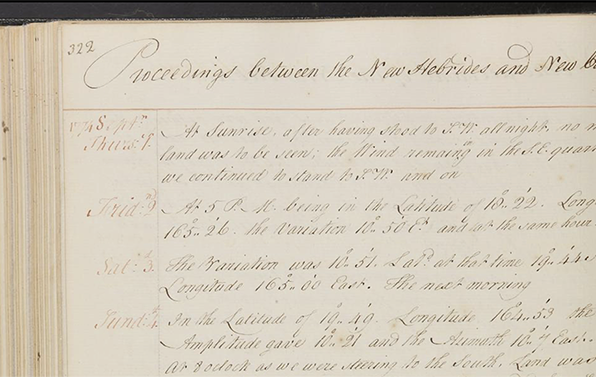 322
Proceedings between the New Hebrides and New
1774 Septr.
Thurs. 1. At Sunrise, after having stood to S.W. all night, no
land was to be seen; the Wind remaing in the S.E.
we continued to stand to S.W. and on
Frid. 2 At 5 P.M. being in the Latitude of 18°.. 22'. Long
165°.. 26' the Variation 10°.. 50' Et. and at the same hour
Sat. 3. The Variation was 10°.. 51'. Latd. at that time 19°.. 44'
Longitude 165°.. 00' East. The next morning
Sund. 4. In the Latitude of 19°.. 49'. Longitude 164°.. 53' the
Amplitude gave 10°.. 21' and the Azimuth 10°.. 7' East.
At 8 oclock as we were steering to the South, Land was